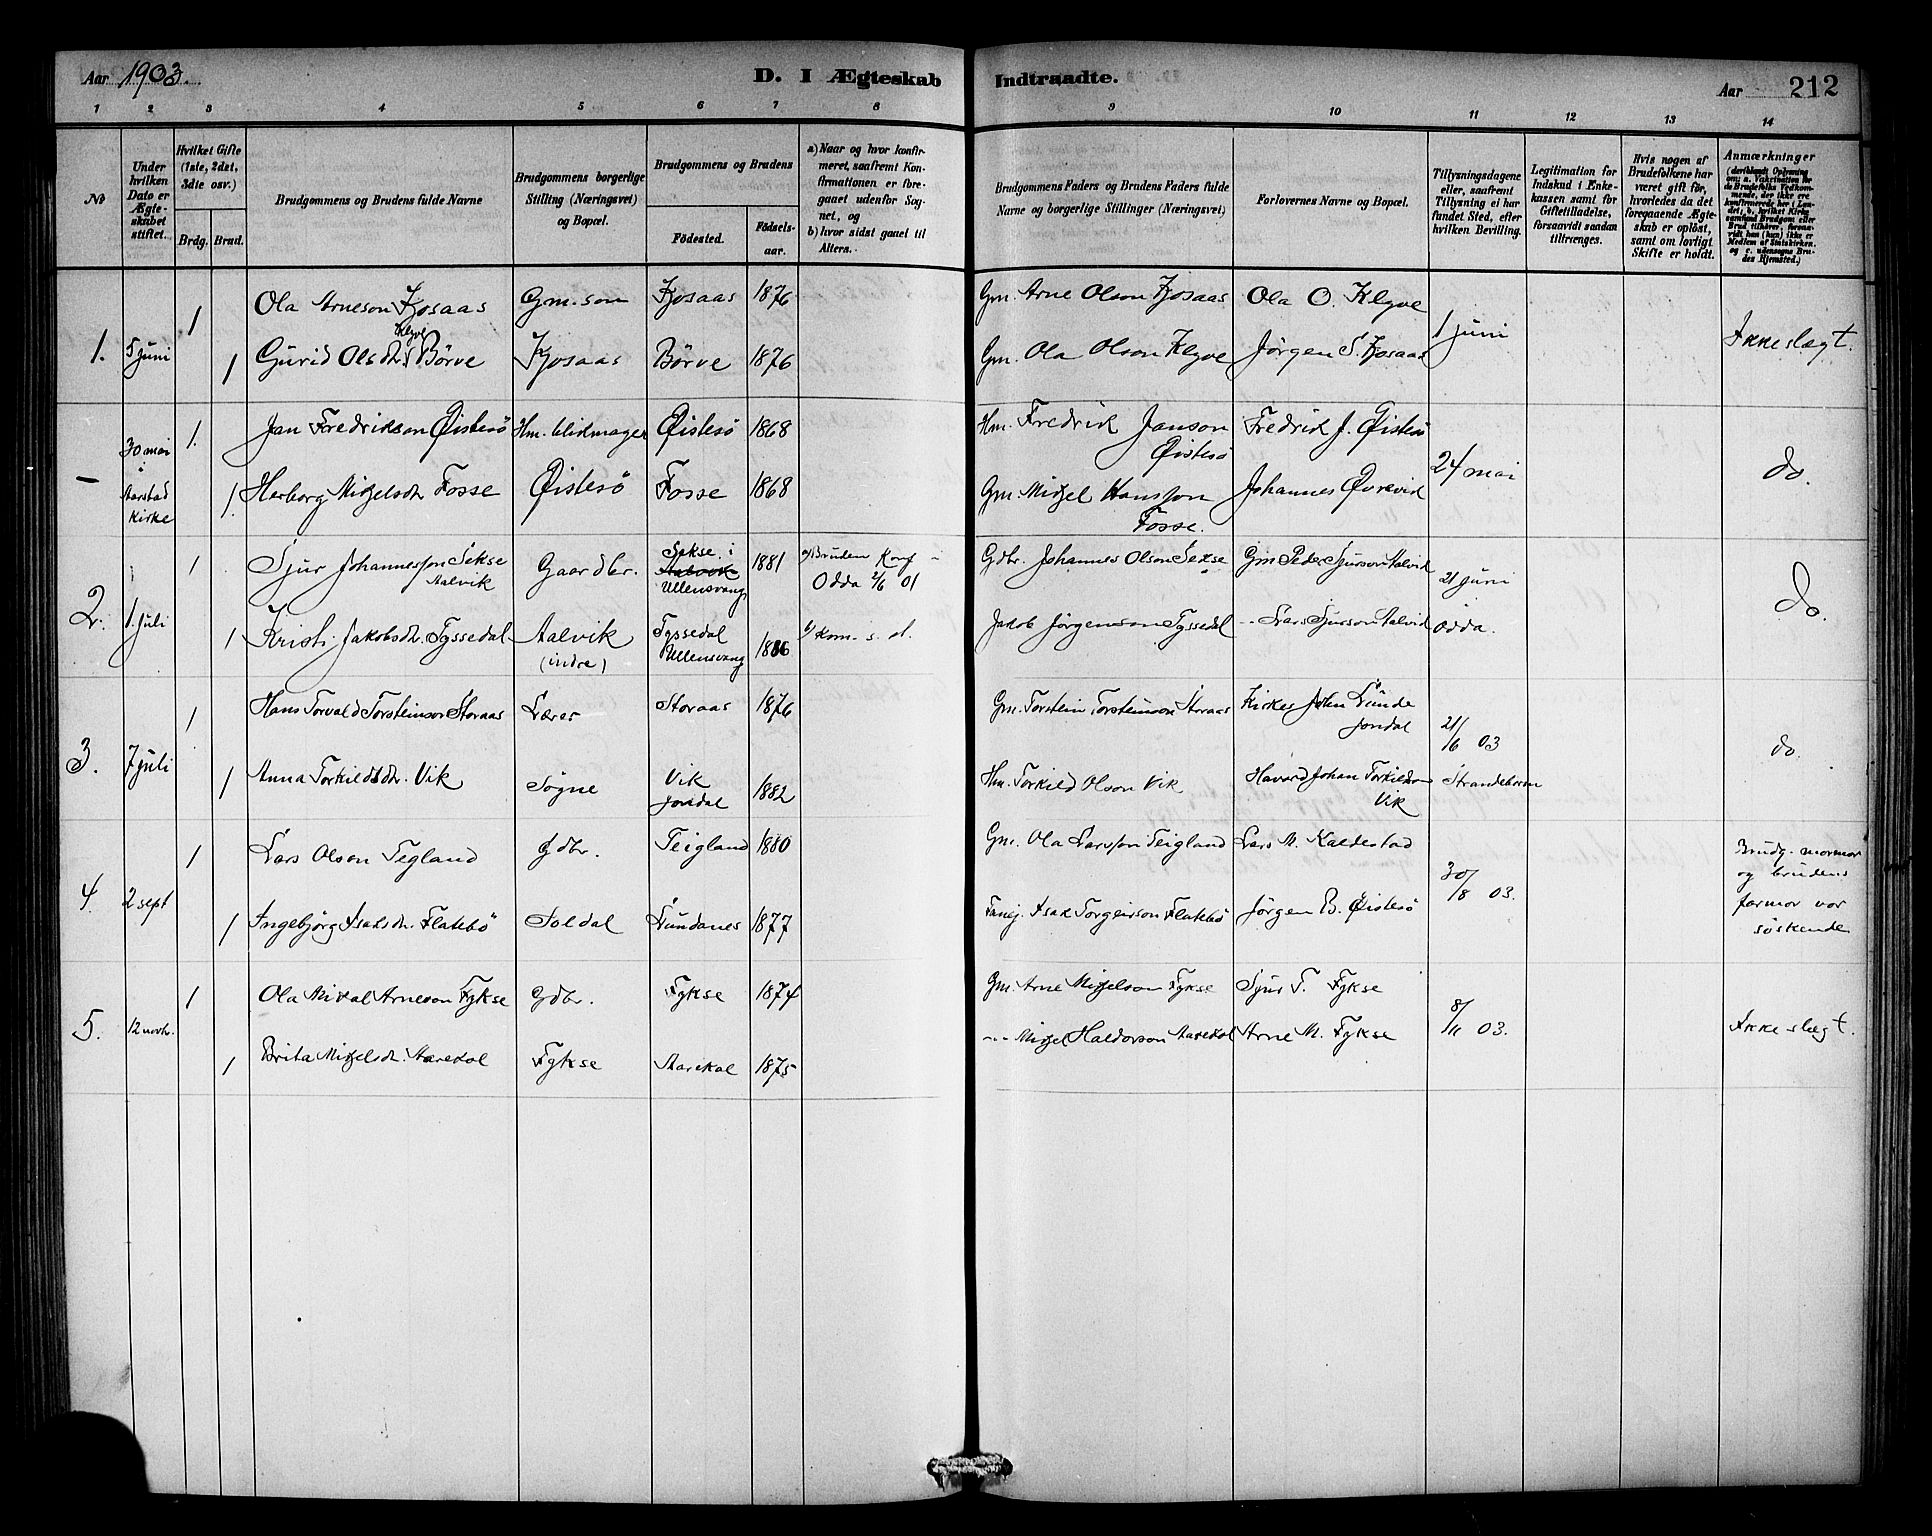 Aar 1903. D. I Ægteskab Indtraadte. Aar 212
1 2 3 4 5 6 7 8 9 10 11 12 13 14
No
Under hvilken Dato er Ægteskabet stiftet.
Hvilket Gifte (1ste, 2det, 3die osv.)
Brdg. Brud.
Brudgommens og Brudens fulde Navne
Brudgommens borgerlige Stilling (Næringsvei) og Bopæl.
Brudgommens og Brudens
Fødested. Fødselsaar.
a) Naar og hvor konfirmeret, saafremt Konfirmationen er foregaaet udenfor Sognet, og
b) hvor sidst gaaet til Alters.
Brudgommens Faders og Brudens Faders fulde Navne og borgerlige Stillinger (Næringsvei)
Forlovernes Navne og Bopæl.
Tillysningsdagene eller, saafremt Tillysning ei har fundet Sted, efter hvilken Bevilling.
Legitimation for Indskud i Enkekassen samt for Giftetilladelse, forsaavidt saadan tiltrænges.
Hvis nogen af Brudefolkene har været gift før, hvorledes da det foregaaende Ægteskab er opløst, samt om lovligt Skifte er holdt.
Anmærkninger
(deriblandt Oplysning om: a. Vaksination for de Brudefolks Vedkommende, der ikke ere konfirmerede her i Landet; b. hvilket Kirkesamfund Brudgom eller Brud tilhører, forsaavidt han (hun) ikke er Medlem af Statskirken, og c. udensogns Brudes Hjemsted.)
1 Ola Arneson Fjosaas Gm. son Fjosaas 1876 Gm. Arne Olson Fjosaas Ola O. Klyve
Klyve
1. 5 juni 1 Gurid Olsdtr. Børve Fjosaas Børve 1876 Gm. Ola Olson Klyve Jørgen S. Fjosaas 1 juni Ikke slegt.
1. Jan Fredrikson Øistesö Hm. blikmager Øistesö 1868 Hm. Fredrik Janson Øistesö Fredrik J. Øistesö
- 30 mai i Aarstad Kirke 1. Herborg Mikjelsdtr Fosse Øistesö Fosse 1868 Gm. Mikjel Hansson Fosse. Johannes Øvrevik 24 mai do.
1 Sjur Johannesson Sekse Aalvik Gaardbr. Sekse i Aalvik Ullensvang 1881 a) Bruden Konf i Odda 2/6 01 Gdbr. Johannes Olson Sekse Gm Peder Sjurson Aalvik
2. 1. juli 1 Kristi Jakobsdr. Tyssedal Aalvik (indre) Tyssedal Ullensvang 1886 b) Kom. s. st. Jakob Jørgenson Tyssedal -- Lars Sjurson Aalvik 21 juni Odda. do.
1 Hans Torvald Torsteinson Storaas Lærer Storaas 1876 Gm. Torstein Torsteinson Storaas Kirkes. John Lunde Jondal
3. 7 juli 1 Anna Torkildsdtr. Vik Sogne Vik Jondal 1882 Hm. Torkild Olson Vik Havard Johan Torkildson Vik 21/6 03 Strandebarm do.
1 Lars Olson Tegland Gdbr. Teigland 1880 Gm. Ola Larsson Teigland Lars M. Kaldestad
4. 2 sept 1 Ingebjørg Isaksdr. Flatebö Soldal Lundanes 1877 Isak Torgeirson Flatebö Jørgen B. Øistesö 30/8 03. Brudg. mormor og brudens farmor var søskende
1 Ola Mikal Arneson Fykse Gdbr. Fykse 1874 Gm. Arne Mikjelson Fykse Sjur T. Fykse
5. 12 novbr. 1 Brita Mikjelsdr. Aarekol Fykse Aarekol 1875 -- Mikjel Haldorson Aarekol Arne M. Fykse 8/11 03. Ikke slegt.